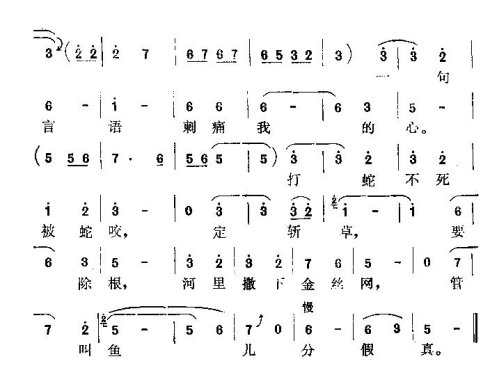 3 ( 2 2 | 2 7 | 6 7 6 7 | 6 5 3 2 | 3 ) 3 | 3 2 |
一 句
6 - | 1 - | 6 6 | 6 - | 6 3 | 5 - |
言 语 刺 痛 我 的 心。
( 5 5 6 | 7 · 6 | 5 6 5 | 5 ) 3 | 3 2 | 3 5 |
打 蛇 不 死
1 2 | 3 - | 0 3 | 3 3 2 | 1 - | 1 6 |
被 蛇 咬, 定 斩 草, 要
6 3 | 5 - | 3 2 | 3 2 | 7 6 | 5 - | 0 7 |
除 根, 河 里 撒 下 金 丝 网, 管
慢
7 2 | 5 - | 5 6 | 7 0 | 6 - | 6 3 | 5 - ‖
叫 鱼 儿 分 假 真。